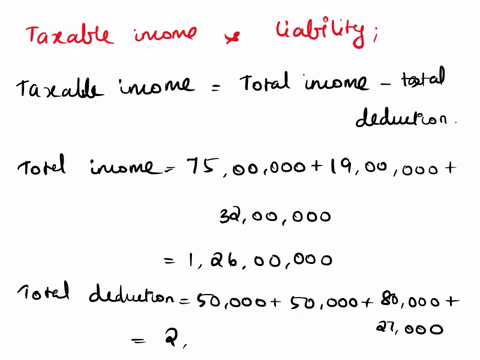 Taxable income & liability;
Taxable income = Total income - total
deduction.
Total income = 75,00,000 + 19,00,000 +
32,00,000
= 1,26,00,000
Total deduction = 50,000 + 50,000 + 80,000 +
27,000
= 2,